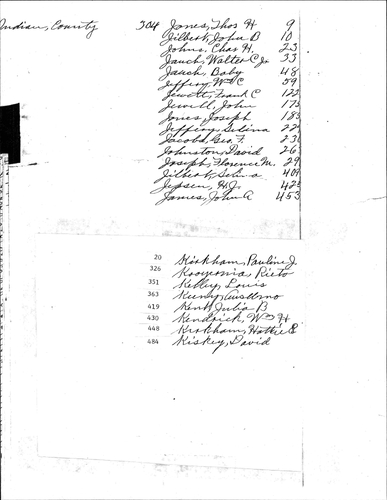 Indian, County 304 Jones, Thos H 9
Jilbert, John B 10
Johns, Chas H. 23
Jauch, Walter C Jr 33
Jauch, Baby 48
Jeffroy, Wm C 59
Jewett, Frank C
Jewell, John
Jones, Joseph
Jeffery, Selina
Jacobs, Geo. F.
Johnston, David
Joseph, Florence M.
Jilbert, Selina 409
Jepsen, H. J.
James, John A 453
20 Kirkham, Pauline J.
326 Kooyomia, Rieto
351 Kelley, Louis
363
419 Kent, Julia B
430 Kendrick, Wm H
448 Kirkham, Hattie E
484 Kiskey, David